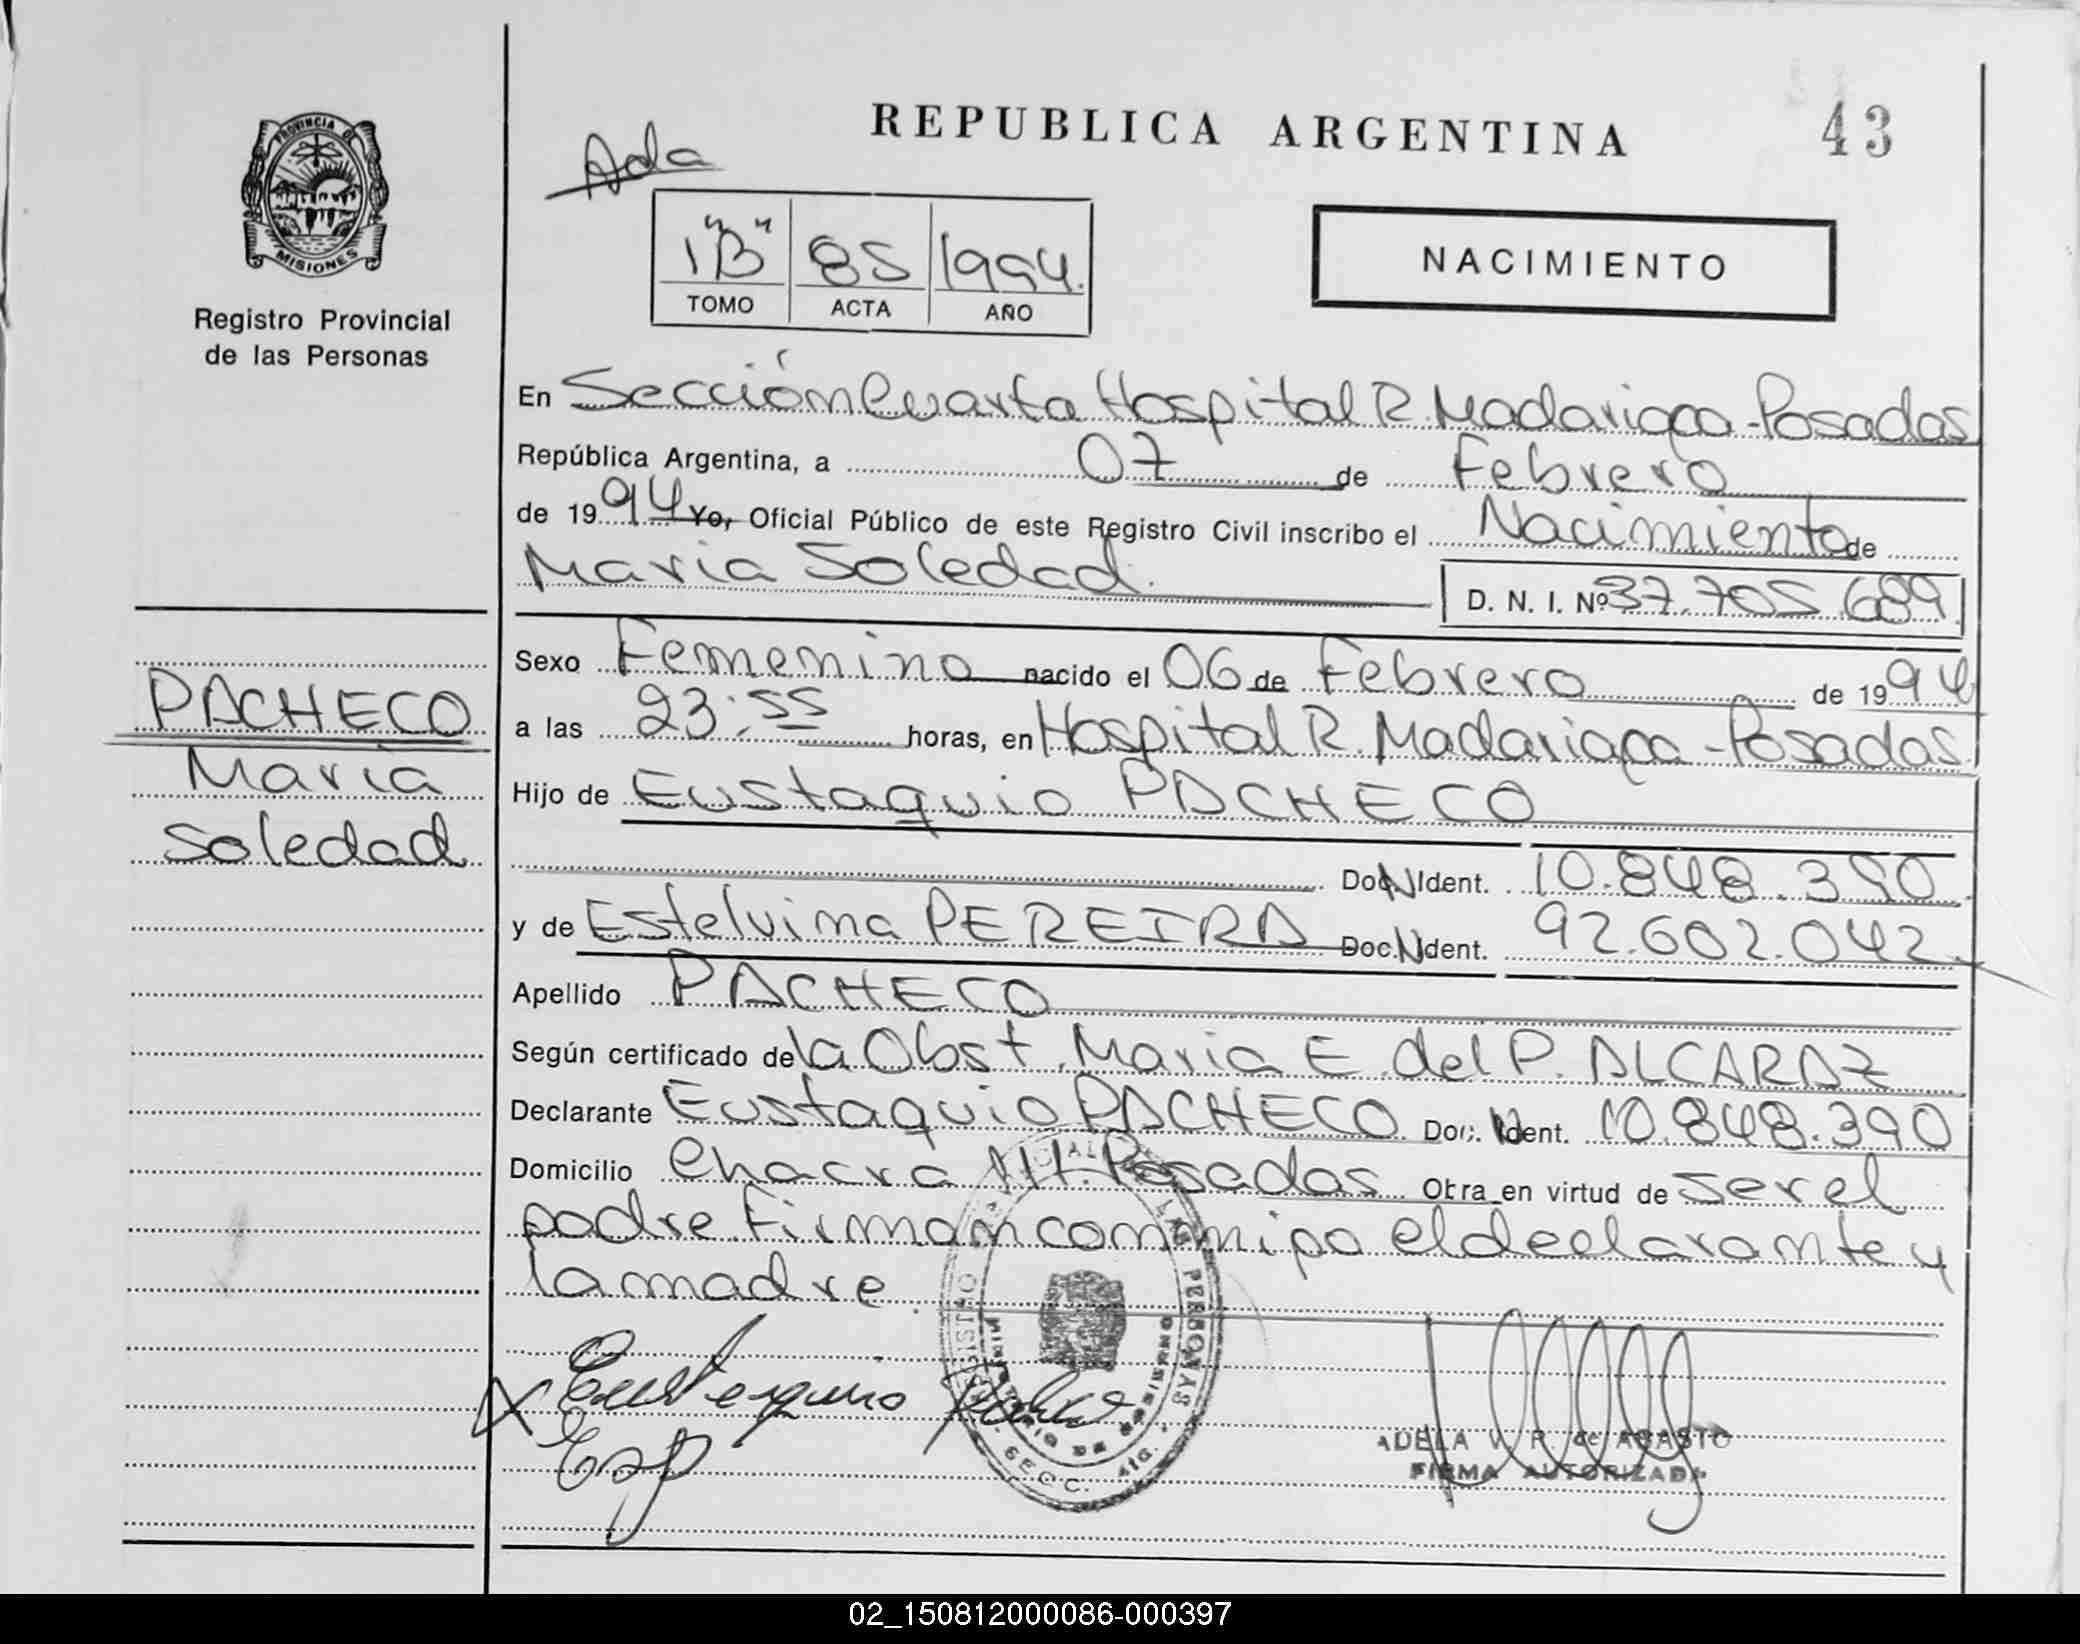 REPUBLICA ARGENTINA
43
Ada
PROVINCIA DE
MISIONES
Registro Provincial
de las Personas
1"B" 85 1994.
TOMO ACTA AÑO
NACIMIENTO
En Sección Cuarta Hospital R. Madariaga - Posadas
República Argentina, a 07 de Febrero
de 1994 Yo, Oficial Público de este Registro Civil inscribo el Nacimiento de
Maria Soledad.
D. N. I. Nº 37.705.689
Sexo Femenino nacido el 06 de Febrero de 1994
a las 23:55 horas, en Hospital R. Madariaga - Posadas
Hijo de Eustaquio PACHECO
Doc. N Ident. 10.848.390
y de Estelvina PEREIRA Doc. N Ident. 92.602.042
Apellido PACHECO
Según certificado de la Obst. Maria E. del P. ALCARAZ
Declarante Eustaquio PACHECO Doc. Ident. 10.848.390
Domicilio Chacra 111. Posadas Otra en virtud de ser el
padre. Firman conmigo el declarante y
la madre.
PACHECO
Maria
Soledad
Eustaquio
LAS PERSONAS
ADELA V. R. de AGASTO
FIRMA AUTORIZADA
02_150812000086-000397